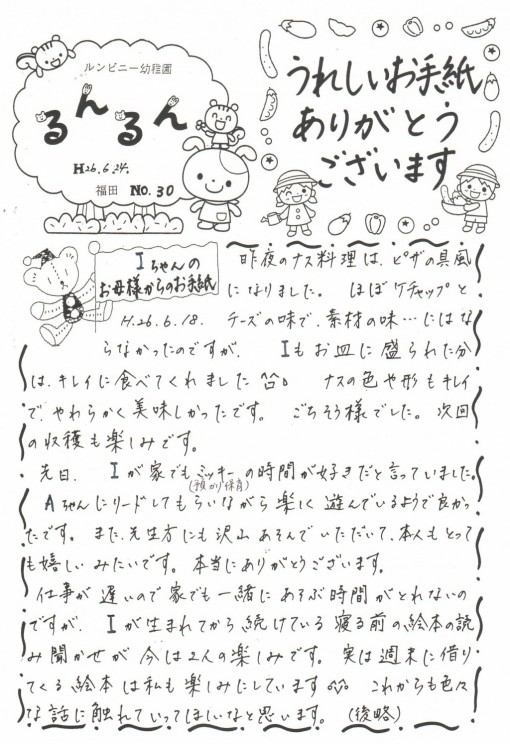 ルンビニー幼稚園
るんるん
H26.6.24.
福田 No.30
うれしいお手紙
ありがとう
ございます
Iちゃんの
お母様からのお手紙
H.26.6.18.
昨夜のナス料理は、ピザの具風
になりました。 ほぼケチャップと
チーズの味で、素材の味…にはな
らなかったのですが、 Iもお皿に盛られた分
は、キレイに食べてくれました^^。 ナスの色や形もキレイ
で、やわらかく美味しかったです。 ごちそう様でした。 次回
の収穫も楽しみです。
先日、 Iが家でもミッキーの時間が好きだと言っていました。
(預かり保育)
Aちゃんにリードしてもらいながら楽しく遊んでいるようで良かっ
たです。 また、先生方にも沢山あそんでいただいて、本人もとって
も嬉しいみたいです。 本当にありがとうございます。
仕事が遅いので家でも一緒にあそぶ時間がとれないの
ですが、 Iが生まれてから続けている寝る前の絵本の読
み聞かせが今は2人の楽しみです。 実は週末に借り
てくる絵本は私も楽しみにしています^^。 これからも色々
な話に触れていってほしいなと思います。 (後略)